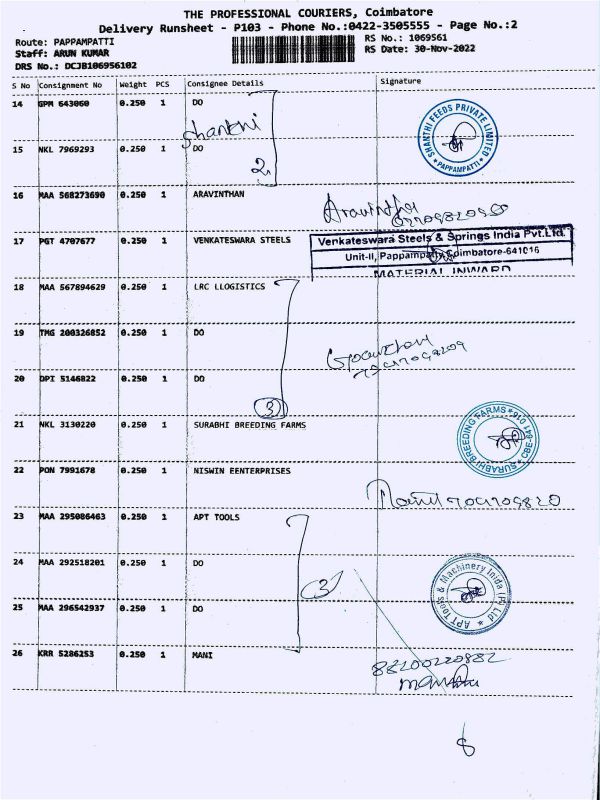 THE PROFESSIONAL COURIERS, Coimbatore
Delivery Runsheet - P103 - Phone No.:0422-3505555 - Page No.:2
Route: PAPPAMPATTI
RS No.: 1069561
Staff: ARUN KUMAR
RS Date: 30-Nov-2022
DRS No.: DCJB106956102
S No Consignment No Weight PCS Consignee Details Signature
14 GPM 643060 0.250 1 DO
Shanthi
SHANTHI FEEDS PRIVATE LIMITED
* PAPPAMPATTI *
15 NKL 7969293 0.250 1 DO
2
16 MAA 568273690 0.250 1 ARAVINTHAN
Aravintha
17 PGT 4707677 0.250 1 VENKATESWARA STEELS
Venkateswara Steels & Springs India Pvt.Ltd.
Unit-II, Pappampatti, Coimbatore-641016
MATERIAL INWARD
18 MAA 567894629 0.250 1 LRC LLOGISTICS
19 TMG 200326852 0.250 1 DO
20 DPI 5146822 0.250 1 DO
3
21 NKL 3130220 0.250 1 SURABHI BREEDING FARMS
SURABHI BREEDING FARMS * CBE-641 016 *
22 PON 7991678 0.250 1 NISWIN EENTERPRISES
23 MAA 295086463 0.250 1 APT TOOLS
24 MAA 292518201 0.250 1 DO
3
APT Tools & Machinery Inida (P) Ltd *
25 MAA 296542937 0.250 1 DO
26 KRR 5286253 0.250 1 MANI
8